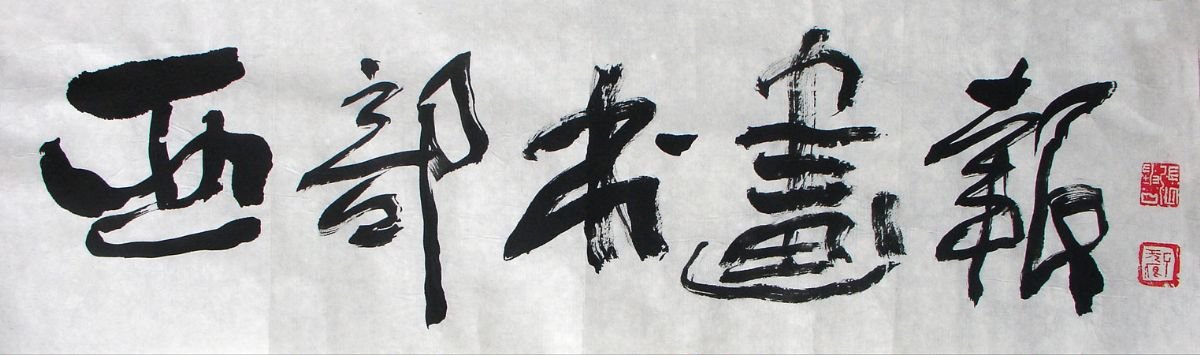 西部书畫報